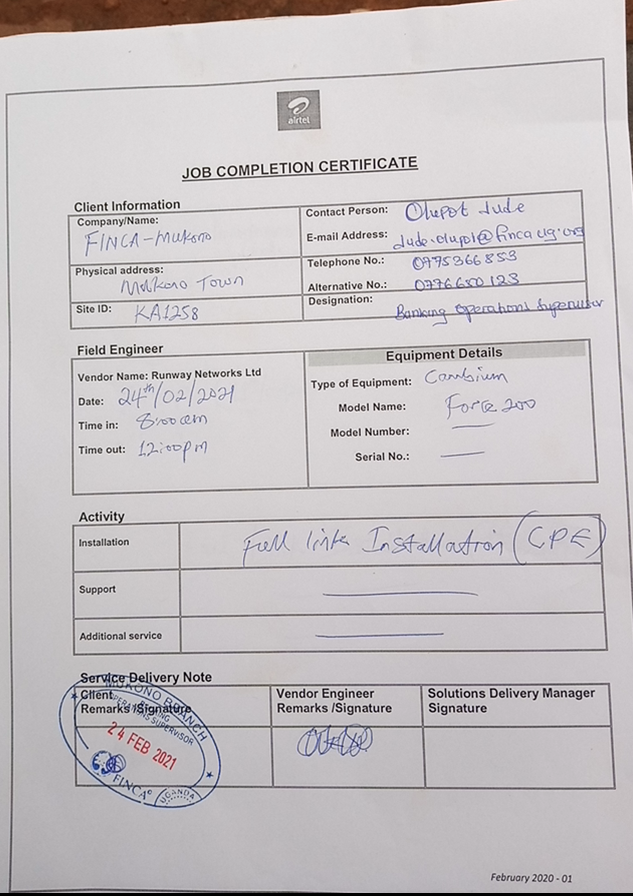 airtel
JOB COMPLETION CERTIFICATE
Client Information
Company/Name:
FINCA-Mukono
Physical address:
Mukono Town
Site ID: KA1258
Contact Person: Olupot Jude
E-mail Address: Jude.olupot@fincaug.org
Telephone No.: 0775366853
Alternative No.: 0776650123
Designation: Banking Operations Supervisor
Field Engineer
Vendor Name: Runway Networks Ltd
Date: 24th/02/2021
Time in: 8:00am
Time out: 12:00pm
Equipment Details
Type of Equipment: Cambium
Model Name: Force 200
Model Number:
Serial No.:
Activity
Installation Full link Installation (CPE)
Support
Additional service
Service Delivery Note
Client
Remarks /Signature
Vendor Engineer
Remarks /Signature
Solutions Delivery Manager
Signature
MUKONO BRANCH
OPERATIONS SUPERVISOR
24 FEB 2021
FINCA
UGANDA
February 2020 - 01